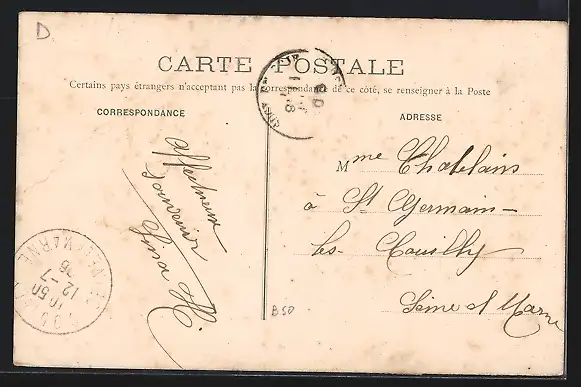 D
CARTE POSTALE
Certains pays étrangers n'acceptant pas la correspondance de ce côté, se renseigner à la Poste
CORRESPONDANCE
ADRESSE
Affectueux
souvenir
H
Mme Chatelains
à St Germain-
les-Couilly
Seine et Marne
12-7
B50